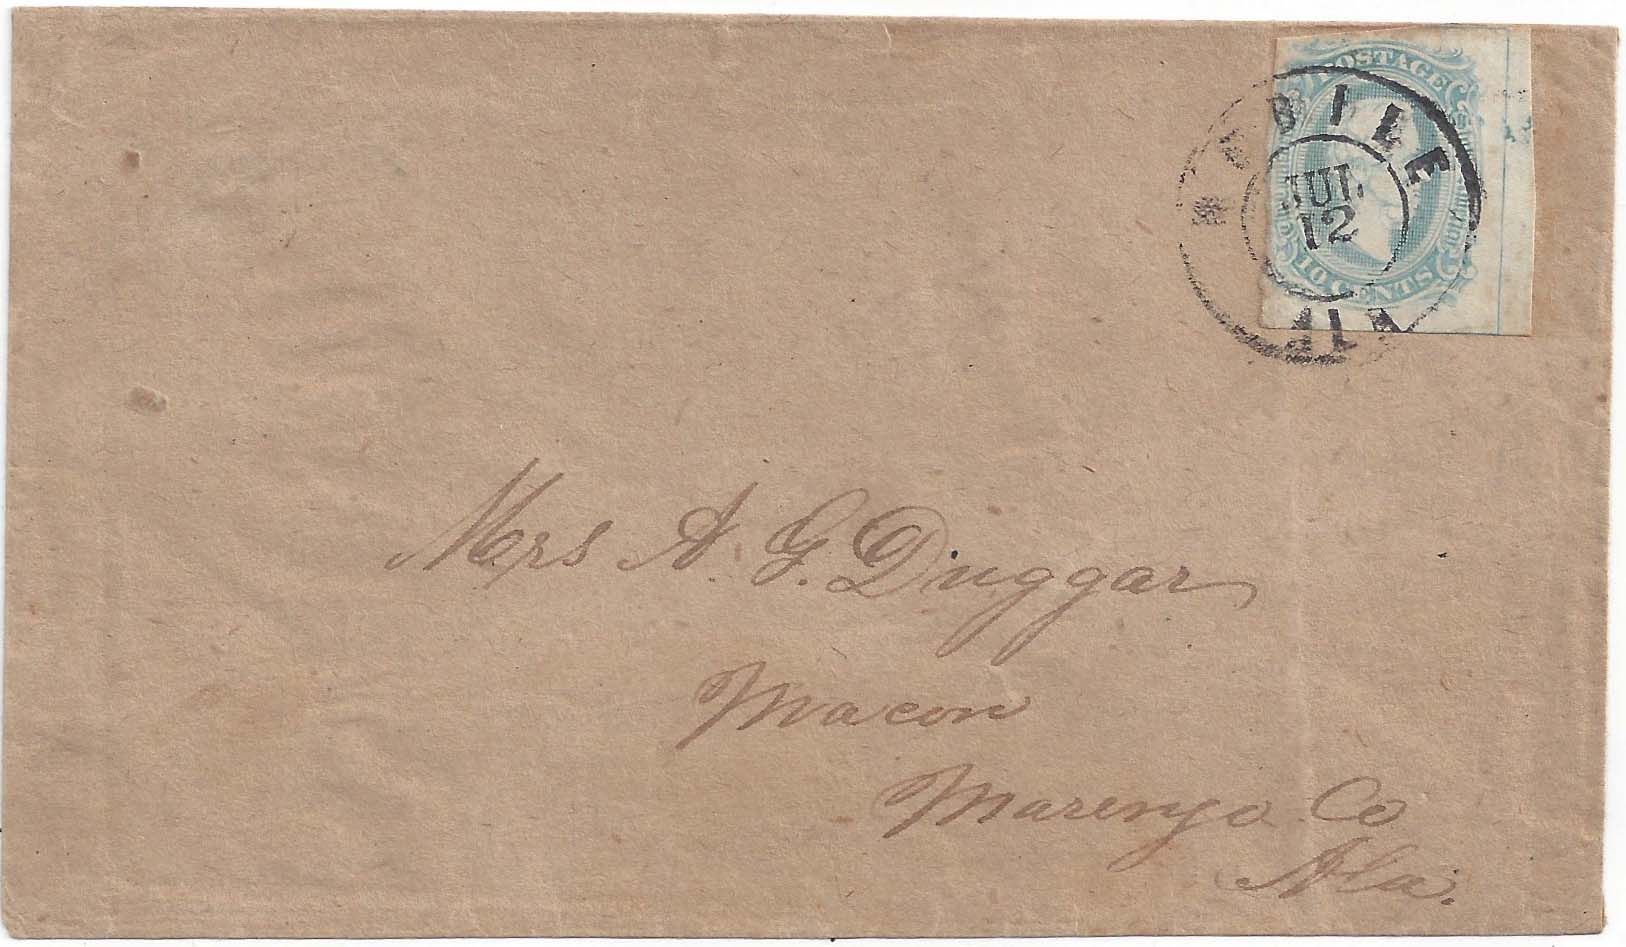 POSTAGE
MOBILE
JUL
12
10 CENTS
ALA
Mrs A. G. Duggar
Macon
Marengo Co
Ala.